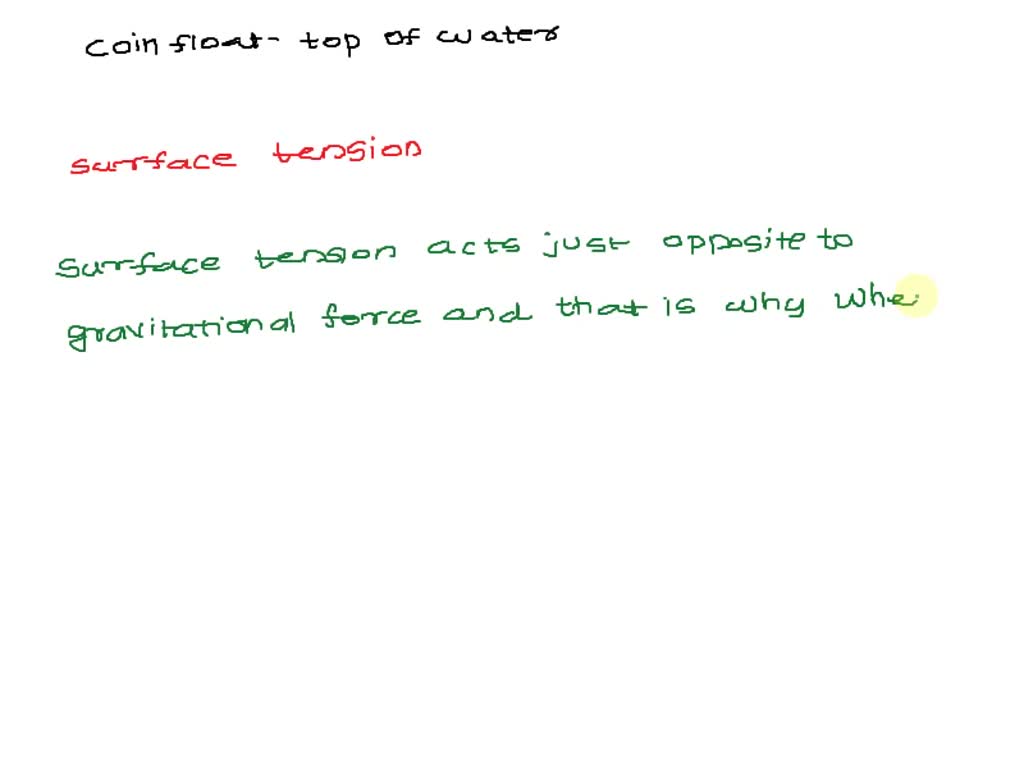 coin float - top of water
surface tension
surface tension acts just opposite to
gravitational force and that is why whe